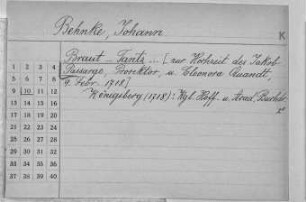 Behnke, Johann
K
Braut-Tantz ... [zur Hochzeit des Jakob
Passarge, Prorektor, u. Eleonora Quandt,
9. Febr. 1718]
Königsberg (1718): Kgl. Hoff- u. Acad. Buchdr.
1 2 3 4
5 6 7 8
9 10 11 12
13 14 15 16
17 18 19 20
21 22 23 24
25 26 27 28
29 30 31 32
33 34 35 36
37 38 39 40